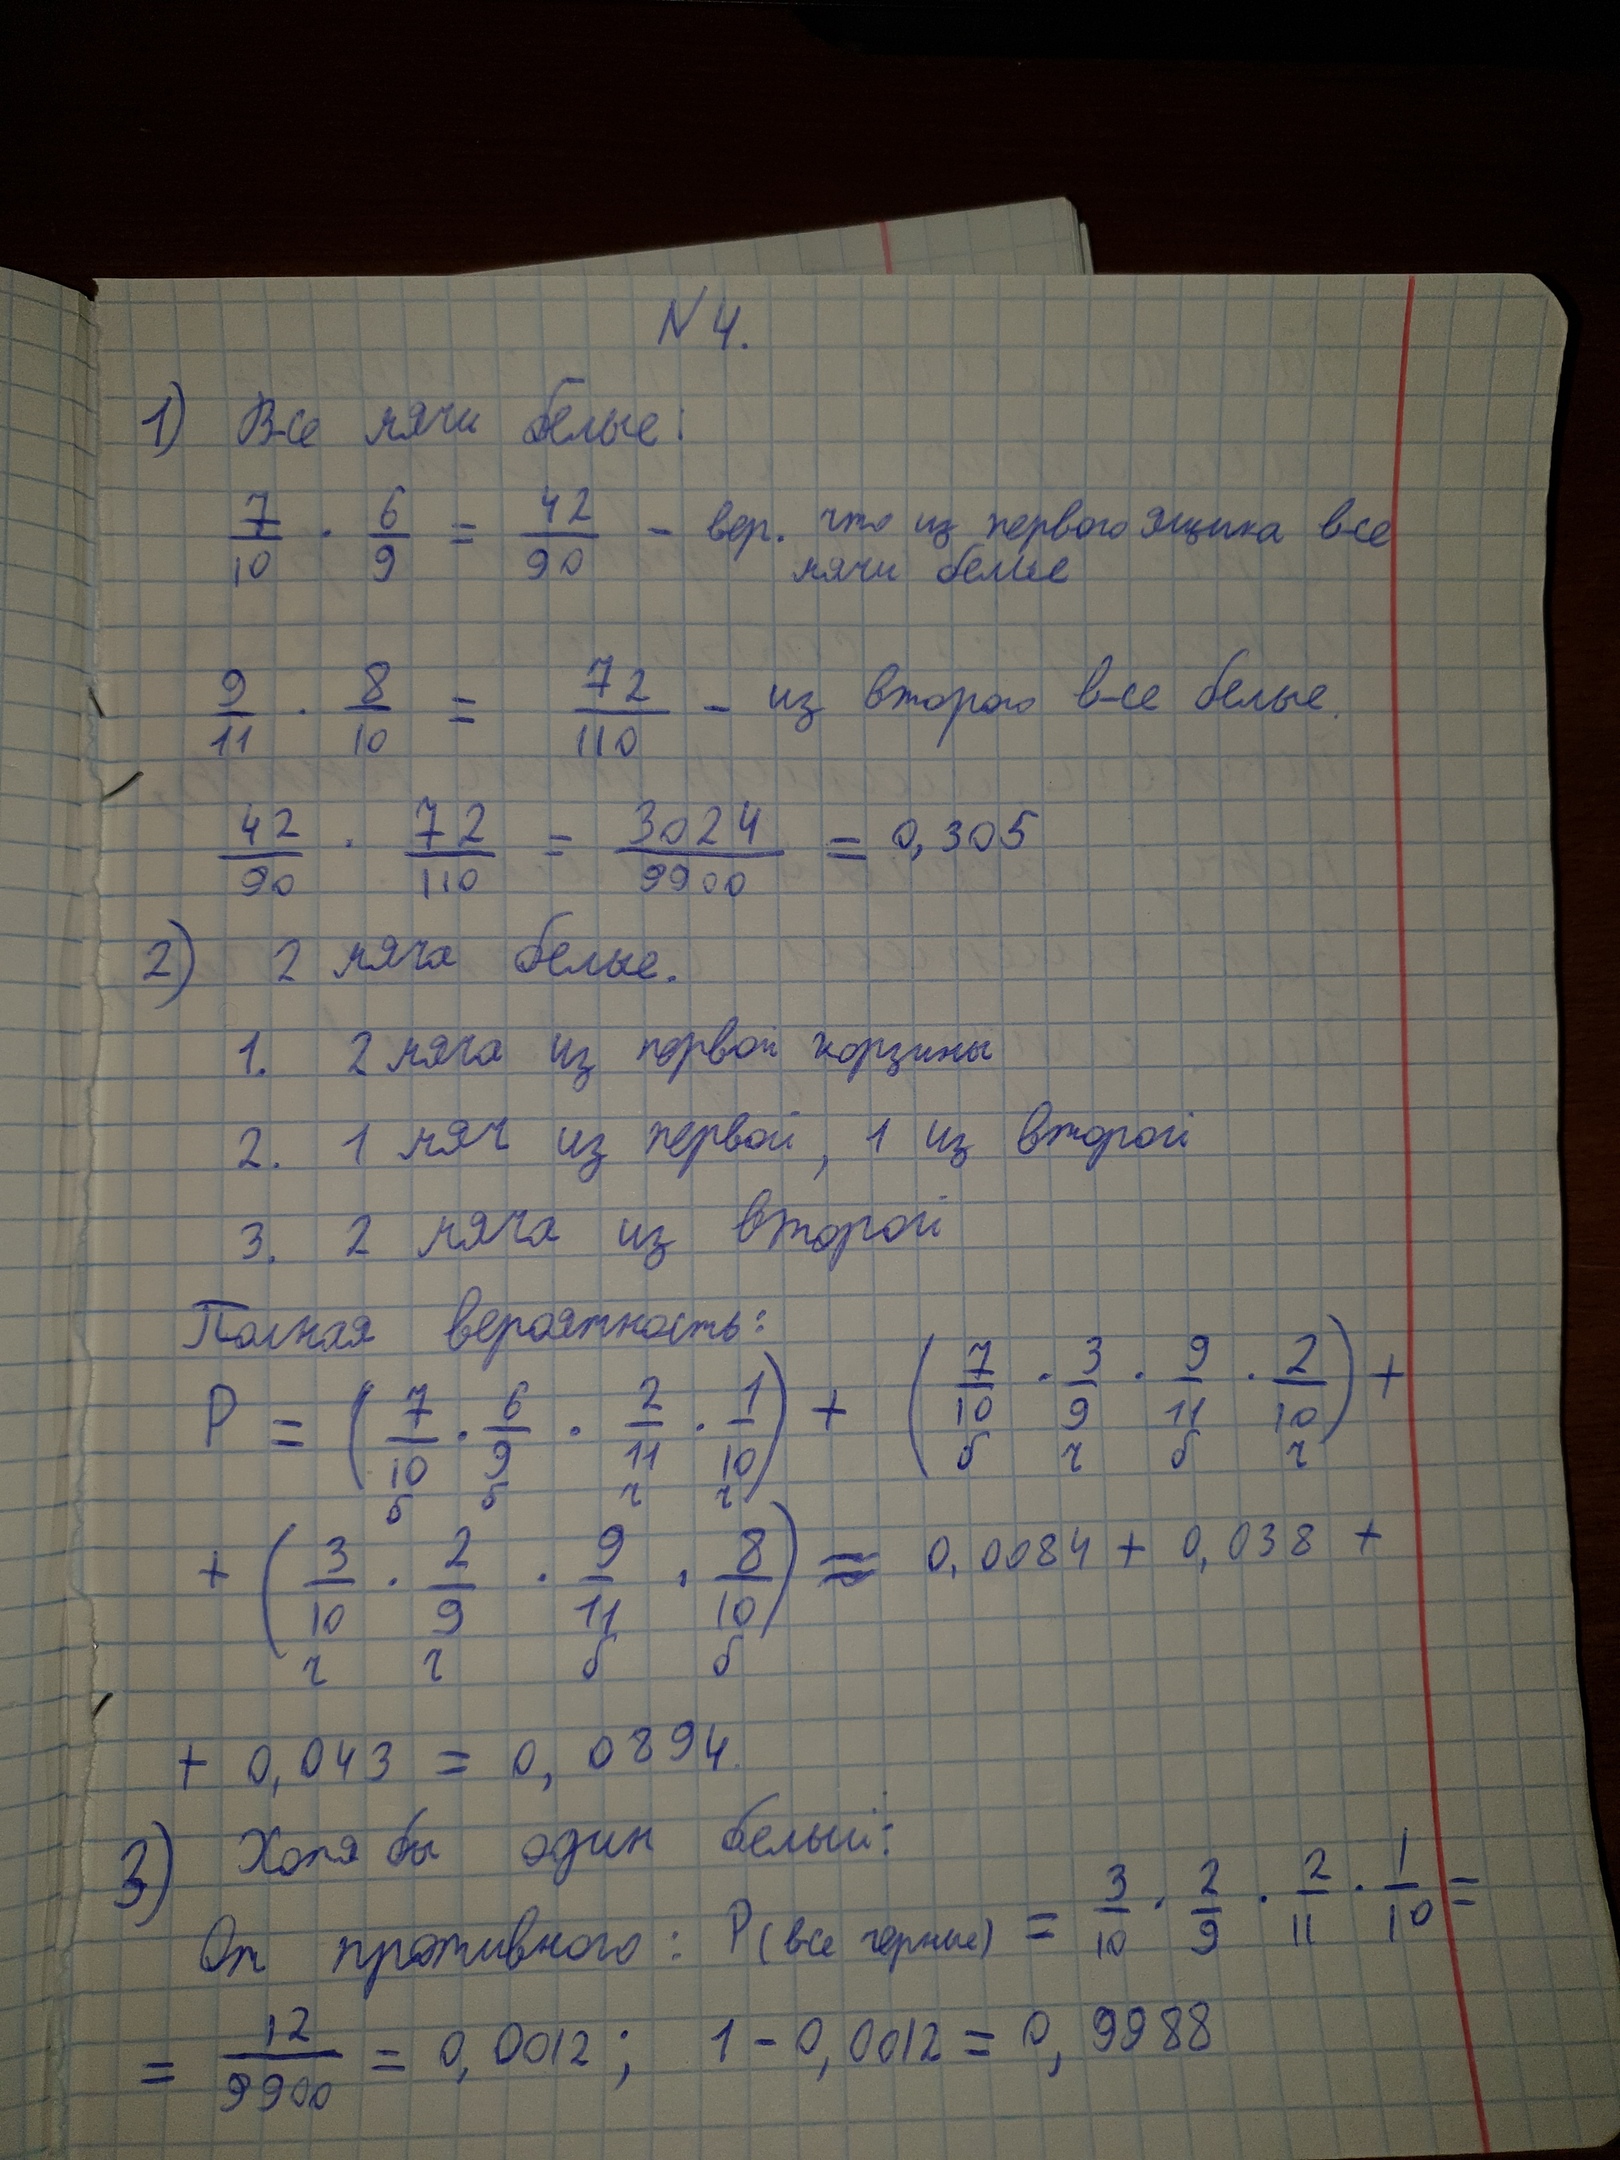 N 4.
1) Все мячи белые:
7/10 · 6/9 = 42/90 - вер. что из первого ящика все
мячи белые
9/11 · 8/10 = 72/110 - из второго все белые.
42/90 · 72/110 = 3024/9900 = 0,305
2) 2 мяча белые.
1. 2 мяча из первой корзины
2. 1 мяч из первой, 1 из второй
3. 2 мяча из второй
Полная вероятность:
P = (7/10 · 6/9 · 2/11 · 1/10) + (7/10 · 3/9 · 9/11 · 2/10) +
б б ч ч б ч б ч
+ (3/10 · 2/9 · 9/11 · 8/10) ≈ 0,0084 + 0,038 +
ч ч б б
+ 0,043 = 0,0894.
3) Хотя бы один белый:
От противного: P(все черные) = 3/10 · 2/9 · 2/11 · 1/10 =
= 12/9900 = 0,0012; 1 - 0,0012 = 0,9988